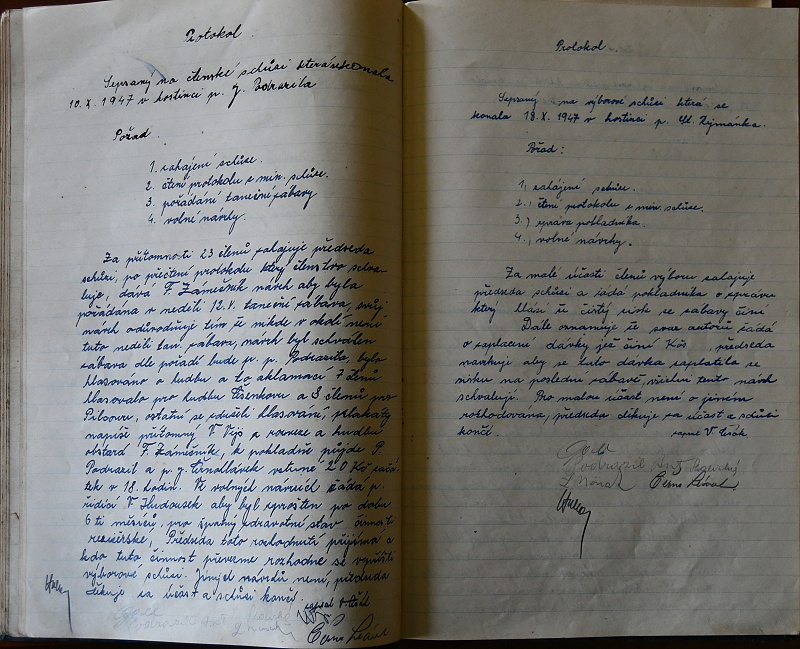 Protokol.
Sepsaný na členské schůsi která se konala
10.X.1947 v hostinci p. J. Podrazila
Pořad.
1. zahájení schůse.
2. čtení protokolu s min. schůse.
3. pořádání taneční zábavy
4. volné návrhy.
Za přítomnosti 23 členů zahajuje předseda
schůsi, po přečtení protokolu který členstvo schva-
luje, dává F. Zámečník návrh aby byla
pořádána v neděli 12.X. taneční zábava, svůj
návrh odůvodňuje tím že nikde v okolí není
tuto neděli tan. zábava, návrh byl schválen
zábava dle pořadí bude p. p. Podrazila, bylo
hlasováno o hudbu a to aklamací 7 členů
hlasovalo pro hudbu a 3 členů pro
ostatní se zdrželi hlasování, plakáty
napíše přítomný V. a rozveze a hudbu
obstará F. Zámečník, k pokladně půjde P.
Podrazil a p. J. vstupné 20 Kčs začá-
tek v 18. hodin. Ve volných návrzích žádá p.
řídící V. Hudousek aby byl zproštěn po dobu
6ti měsíců, pro špatný zdravotní stav činnosti
režisérské, Předseda toto rozhodnutí přijímá a
kdo tuto činnost převezme rozhodne se v příští
výborové schůsi. Jiných návrhů není, předseda
děkuje za účast a schůsi končí.
zapsal V. Čsák
Černo
Protokol.
Sepsaný na výborové schůsi která se
konala 18.X.1947 v hostinci p. Vl. Zejmánka.
Pořad:
1., zahájení schůse.
2., čtení protokolu s min. schůse.
3., zpráva pokladníka.
4., volné návrhy.
Za malé účasti členů výboru zahajuje
předseda schůsi a žádá pokladníka o zprávu
který hlásí že čistý zisk ze zábavy činí
Dále oznamuje že svaz autorů žádá
o zaplacení dávky jež činí Kčs předseda
navrhuje aby se tato dávka zaplatila ze
zisku na poslední zábavě, všichni tento návrh
schvalují. Pro malou účast není o jiném
rozhodováno, předseda děkuje za účast a schůsi
končí. zapsal V. Čsák
Podrazil Ant.
Černo